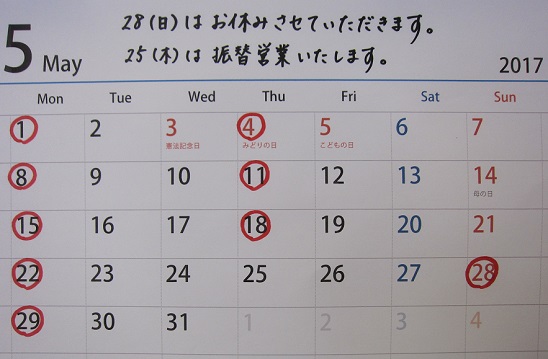 28(日)はお休みさせていただきます。
25(木)は振替営業いたします。
5 May 2017
Mon Tue Wed Thu Fri Sat Sun
1 2 3 4 5 6 7
憲法記念日 みどりの日 こどもの日
8 9 10 11 12 13 14
母の日
15 16 17 18 19 20 21
22 23 24 25 26 27 28
29 30 31 1 2 3 4